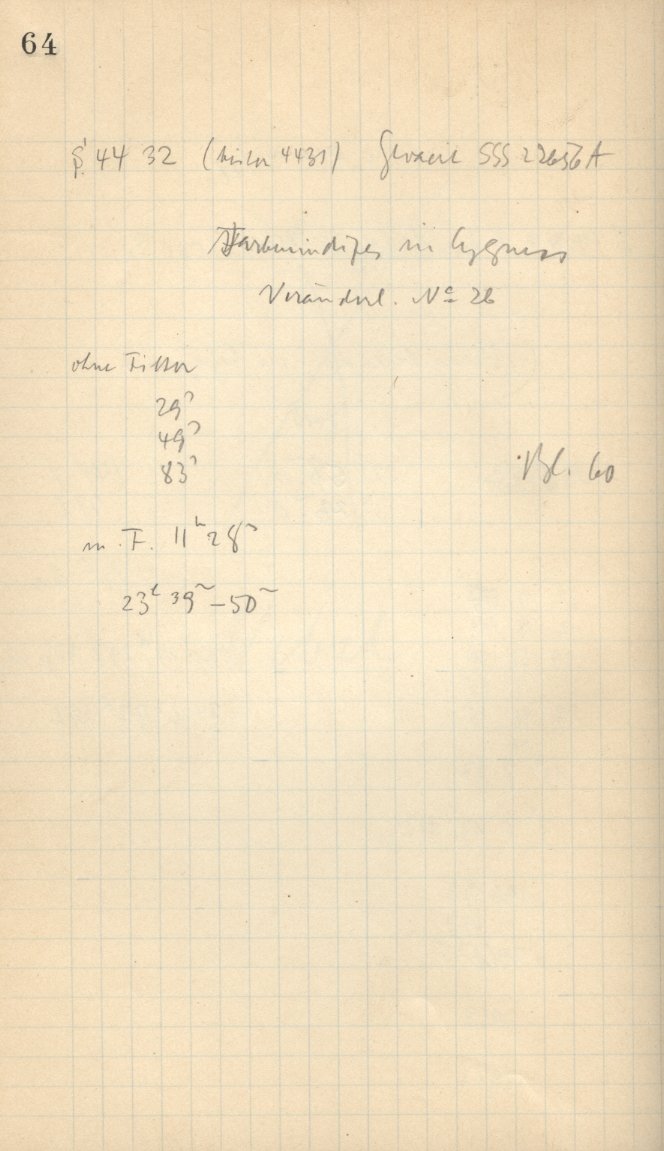 64
4432 (bisher 4431) Gevaert SSS 22656A
Farbenindizes in Cygnus
Veränderl. No 26
ohne Filter
29s
49s
83s
Bl. 60
m. F. 11h 28s
23h 39m – 50m